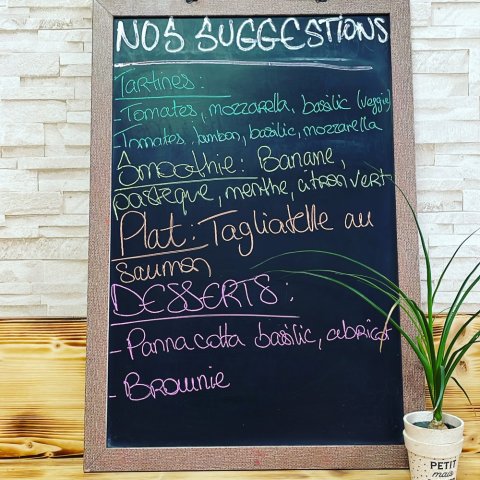 NOS SUGGESTIONS
Tartines :
- Tomates, mozzarella, basilic (veggie)
- Tomates, jambon, basilic, mozzarella
Smoothie : Banane,
pastèque, menthe, citron vert
Plat : Tagliatelle au
saumon
DESSERTS :
- Panna cotta basilic, abricot
- Brownie
PETIT
mais